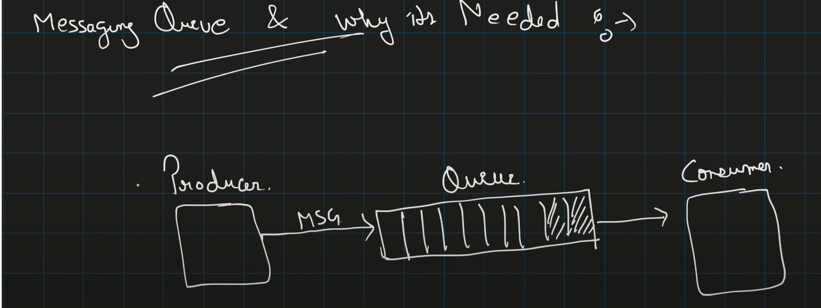 Messaging Queue & why its Needed :->
Producer.
Queue.
Consumer.
MSG